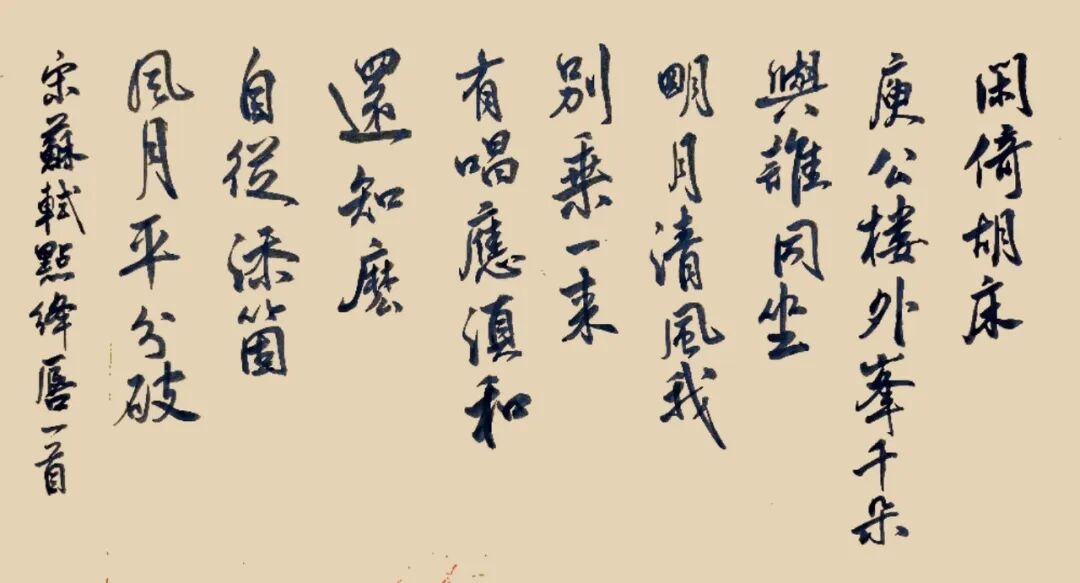 閑倚胡床
庾公樓外峯千朵
與誰同坐
明月清風我
別乘一来
有唱應須和
還知麽
自從添箇
風月平分破
宋蘇軾點絳唇一首